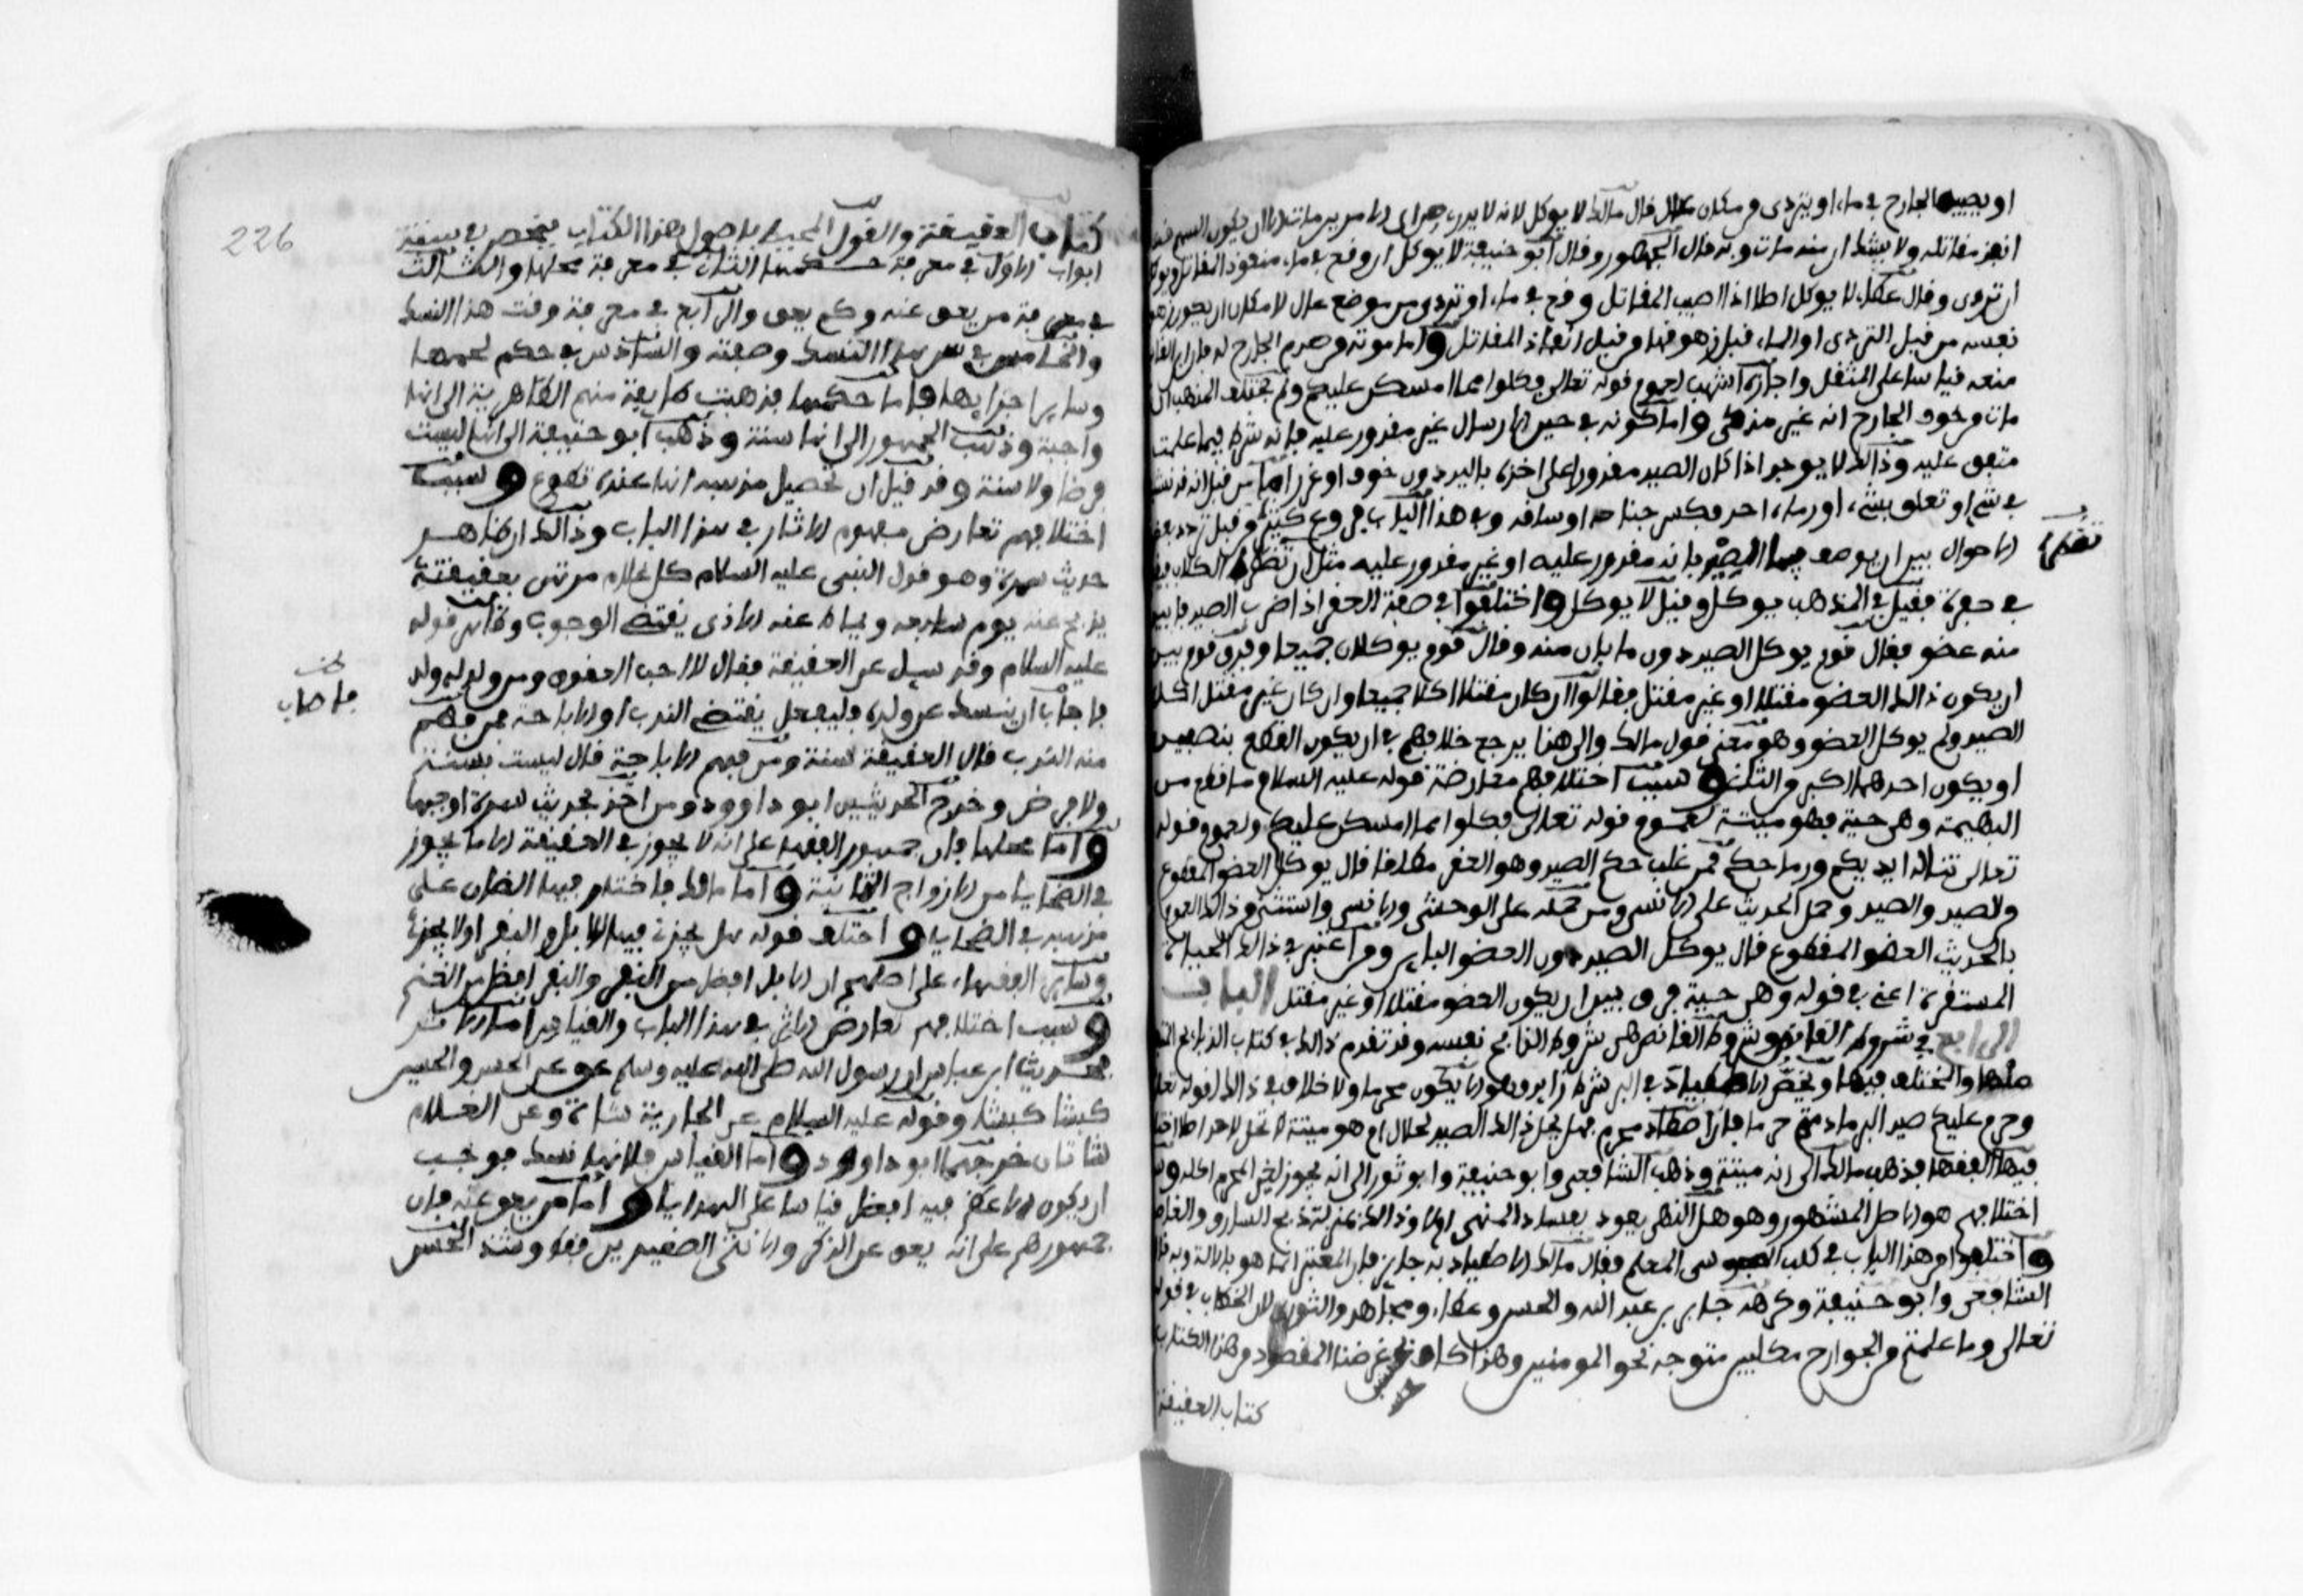 او يصيبه الجارح في ماء او يتردى من مكان عال فقال مالك لا يوكل لانه لا يدرى من اي الامرين مات الا ان يكون السهم قد
انفذ مقاتله ولا يشك ان منه مات وبه قال الجمهور وقال ابو حنيفة لا يوكل ان وقع في ماء منفوذ المقاتل ويوكل
ان تردى وقال عطاء لا يوكل اصلا اذا اصيب المقاتل وقع في ماء او تردى من موضع عال لامكان ان يكون زهوق
نفسه من قبل التردي او الماء قبل زهوقها من قبل انفاذ المقاتل واما موته من صدم الجارح له فان ابن القاسم
منعه قياسا على المثقل واجازه اشهب لعموم قوله تعالى فكلوا مما امسكن عليكم ولم يختلف المذهب ان
مات من خوف الجارح انه غير مذكى واما كونه في حين الارسال غير مقدور عليه فانه شرط فيما علمت
متفق عليه وذالك لا يوجد اذا كان الصيد مقدورا على اخذه باليد دون خوف او غرر اما من قبل انه قد نشب
في شيء او تعلق بشيء او رماه احد فكسر جناحه او ساقه وفي هذا الباب فروع كثيرة من قبل تردد بعض
الاحوال بين ان يوصف فيها الصيد بانه مقدور عليه او غير مقدور عليه مثل ان تضطره الكلاب فيقع
تضطره
في حفرة فقيل في المذهب يوكل وقيل لا يوكل واختلفوا في صفة العقر اذا ضرب الصيد فابين
منه عضو فقال قوم يوكل الصيد دون ما بان منه وقال قوم يوكلان جميعا وفرق قوم بين
ان يكون ذالك العضو مقتلا او غير مقتل فقالوا ان كان مقتلا اكلا جميعا وان كان غير مقتل اكل
الصيد ولم يوكل العضو وهو معنى قول مالك والى هذا يرجع خلافهم في ان يكون القطع بنصفين
او يكون احدهما اكبر من الثاني وسبب اختلافهم معارضة قوله عليه السلام ما قطع من
البهيمة وهي حية فهو ميتة لعموم قوله تعالى فكلوا مما امسكن عليكم ولعموم قوله
تعالى تناله ايديكم ورماحكم فمن غلب حكم الصيد وهو العقر مطلقا قال يوكل العضو المقطوع
من الصيد والصيد وحمل الحديث على الانسي ومن حمله على الوحشي والانسي واستثنى من ذالك العموم
بالحديث العضو المقطوع قال يوكل الصيد دون العضو الباين ومن اعتبر في ذالك الحياة
المستقرة اعني في قوله وهي حية فرق بين ان يكون العضو مقتلا او غير مقتل الباب
الرابع في شروط القانص وشروط القانص هي شروط الذابح نفسه وقد تقدم ذالك في كتاب الذبايح المتفق
منها والمختلف فيها ويخص الاصطياد في البر شرط زايد وهو الا يكون محرما ولا خلاف في ذالك لقوله تعالى
وحرم عليكم صيد البر ما دمتم حرما فان اصطاد محرم فهل يحل ذالك الصيد لحلال ام هو ميتة لا تحل لاحد اصلا اختلف
فيها الفقها فذهب مالك الى انه ميتة وذهب الشافعي وابو حنيفة وابو ثور الى انه يجوز لغير المحرم اكله وسبب
اختلافهم هو الاصل المشهور وهو هل النهي يعود بفساد المنهي ام لا وذالك بمنزلة ذبح السارق والغاصب
واختلفوا من هذا الباب في كلب المجوسي المعلم فقال مالك الاصطياد به جايز فان المعتبر انما هو بالالة وبه قال
الشافعي وابو حنيفة وكرهه جابر بن عبد الله والحسن وعطاء ومجاهد والثوري لان الخطاب في قوله
تعالى وما علمتم من الجوارح مكلبين متوجه نحو المومنين وهذا كاف غرضنا المقصود من هذا الكتاب
كتاب العقيقة
226
كتاب العقيقة والقول المحيط باصول هذا الكتاب ينحصر في ستة
ابواب الاول في معرفة حكمها الثاني في معرفة محلها والثالث
في معرفة من يعق عنه وكم يعق والرابع في معرفة وقت هذا النسك
والخامس في سن هذا النسك وصفته والسادس في حكم لحمها
وساير اجزايها فاما حكمها فذهبت طايفة منهم الظاهرية الى انها
واجبة وذهب الجمهور الى انها سنة وذهب ابو حنيفة الى انها ليست
فرضا ولا سنة وقد قيل ان تحصيل مذهبه انها عنده تطوع وسبب
اختلافهم تعارض مفهوم الاثار في هذا الباب وذالك ان ظاهر
حديث سمرة وهو قول النبي عليه السلام كل غلام مرتهن بعقيقته
يذبح عنه يوم سابعه ويماط عنه الاذى يقتضي الوجوب وظاهر قوله
عليه السلام وقد سيل عن العقيقة فقال لا احب العقوق ومن ولد له ولد
فاحاب
فاحب ان ينسك عن ولده فليفعل يقتضي الندب او الاباحة فمن فهم
منه الندب قال العقيقة سنة ومن فهم الاباحة قال ليست بسنة
ولا فرض وخرج الحديثين ابو داوود ومن اخذ بحديث سمرة اوجبها
واما محلها فان جمهور الفقهاء على انه لا يجوز في العقيقة الا ما يجوز
في الضحايا من الازواج الثمانية واما مالك فاختار فيها الضان على
مذهبه في الضحايا واختلف قوله هل يجزي فيها الابل والبقر اولا يجزي
وساير الفقهاء على اصلهم ان الابل افضل من البقر والبقر افضل من الغنم
وسبب اختلافهم تعارض الاثر في هذا الباب والقياس اما الاثر
فحديث ابن عباس ان رسول الله صلى الله عليه وسلم عق عن الحسن والحسين
كبشا كبشا وقوله عليه السلام عن الجارية شاة وعن الغلام
شاتان خرجهما ابو داوود واما القياس فلانها نسك فوجب
ان يكون الاعظم فيه افضل قياسا على الهدايا واما من يعق عنه فان
جمهورهم على انه يعق عن الذكر والانثى الصغيرين فقط وشذ الحسن